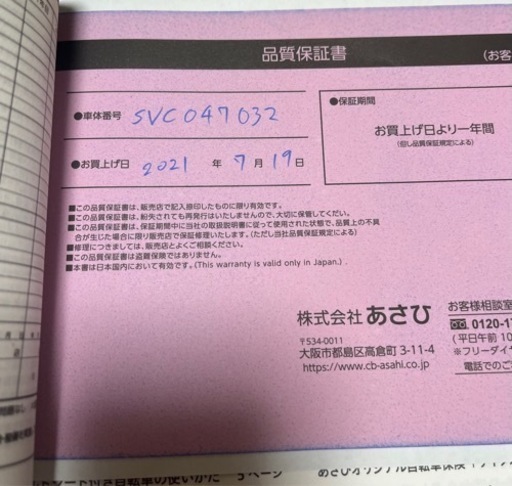 品質保証書
(お客
●車体番号 SVC047032
●保証期間
お買上げ日より一年間
(但し品質保証規定による)
●お買上げ日 2021 年 7 月 19 日
■この品質保証書は、販売店で記入捺印したものに限り有効です。
■この品質保証書は、紛失されても再発行はいたしませんので、大切に保管してください。
■この品質保証書は、保証期間中に当社の取扱説明書に従って使用された状態で、品質上の不具
合が生じた場合に限り販売店で保証修理いたします。(ただし当社品質保証規定による)
■修理につきましては、販売店とよくご相談ください。
■この品質保証書は盗難保険ではありません。
■本書は日本国内において有効です。(This warranty is valid only in Japan.) .
株式会社 あさひ
〒534-0011
大阪市都島区高倉町 3-11-4
https://www.cb-asahi.co.jp
お客様相談室
0120-1
(平日午前 10
※フリーダイヤ
電話でのご